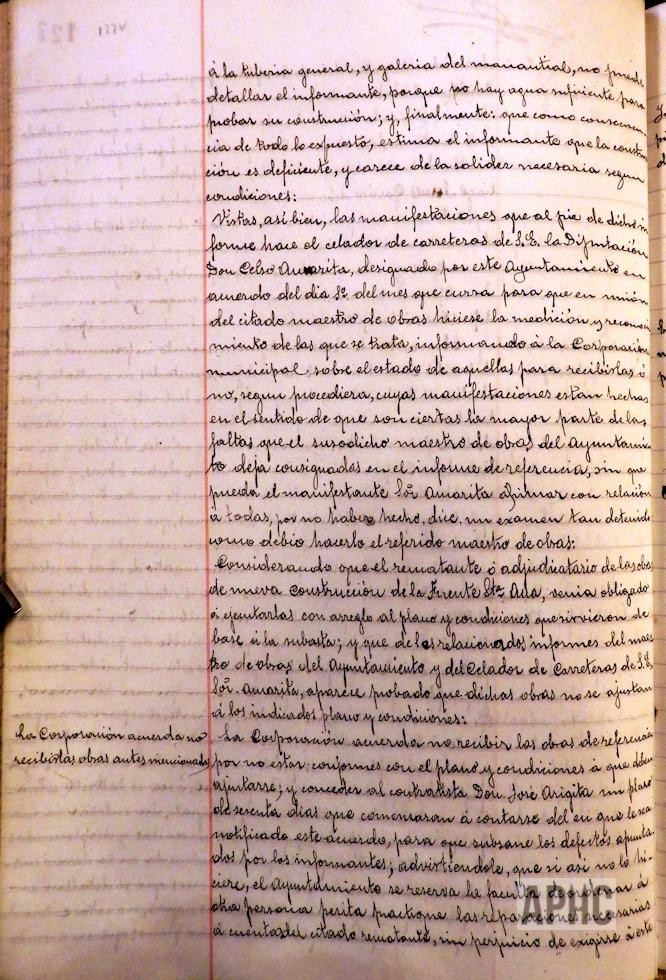 á la tuberia general, y galeria del manantial, no puede
detallar el informante, porque no hay agua suficiente para
probar su construcción; y, finalmente: que como consecuen-
cia de todo lo expuesto, estima el informante que la construc-
ción es deficiente, y carece de la solidez necesaria segun
condiciones:
Vistas, asi bien, las manifestaciones que al pie de dicho in
forme hace el celador de carreteras de S.E. la Diputación
Don Celso Amarita, designado por este Ayuntamiento en
acuerdo del dia 8º del mes que cursa para que en unión
del citado maestro de obras hiciese la medición y reconoci
miento de las que se trata, informando á la Corporación
municipal sobre el estado de aquellas para recibirlas ó
no, segun procediera, cuyas manifestaciones estan hechas
en el sentido de que son ciertas la mayor parte de las
faltas que el susodicho maestro de obras del Ayuntamien-
to deja consignadas en el informe de referencia, sin que
pueda el manifestante Sor. Amarita afirmar con relación
á todas, por no haber hecho, dice, un examen tan detenido
como debio hacerlo el referido maestro de obras:
Considerando que el rematante ó adjudicatario de las obras
de nueva construcción de la Fuente Sta. Ana, venia obligado
á ejecutarlas con arreglo al plano y condiciones que sirvieron de
base á la subasta; y que de los relacionados informes del maes
tro de obras del Ayuntamiento y del Celador de Carreteras de S.E.
Sor. Amarita, aparece probado que dichas obras no se ajustan
á los indicados plano y condiciones:
La Corporación acuerda no
recibir las obras antes mencionadas
La Corporación acuerda no recibir las obras de referencia
por no estar conformes con el plano y condiciones á que deben
ajustarse; y conceder al contratista Don José Arigita un plazo
de sesenta dias que comenzaran á contarse del en que le sea
notificado este acuerdo, para que subsane los defectos apunta-
dos por los informantes; advirtiendole, que si asi no lo hi-
ciere, el Ayuntamiento se reserva la facultad de ordenar á
otra persona perita practique las reparaciones necesarias
á cuenta del citado rematante, sin perjuicio de exigirse á este
APHG